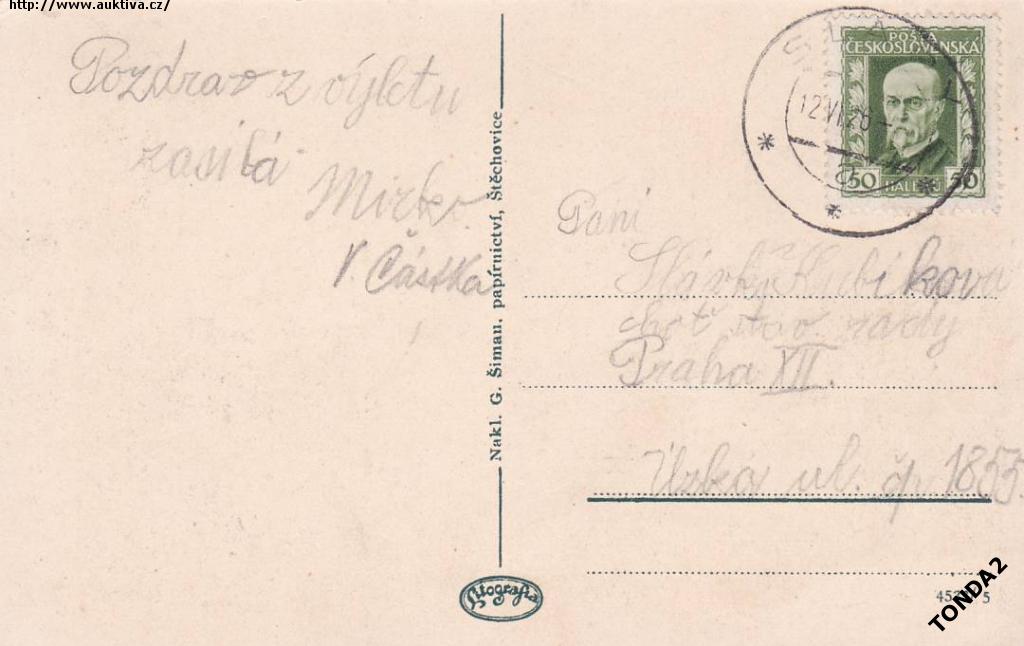 http://www.auktiva.cz/
Pozdrav z výletu
zasílá
Mirko
V. Částka
Nakl. G. Šiman, papírnictví, Štěchovice
POŠTA
ČESKOSLOVENSKÁ
50 HALÉŘŮ 50
12.VI.26
Paní
Slávka Kubíková
choť stav. rady
Praha XII.
Úzká ul. čp. 1855
Litografia
TONDA2